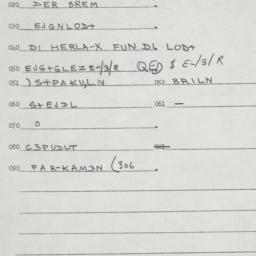 020 DER BREM
030 EJGNLOD+
040 DI HERLA-X FUN DI LOD+
050 EJG+GLEZE-/3/R QED $ E-/3/R
051 )S+PAKU,LN 052 BRILN
060 S+EJDL 061 —
070 0
080 G3PUDLT 081
090 FAR-KAM3N (306